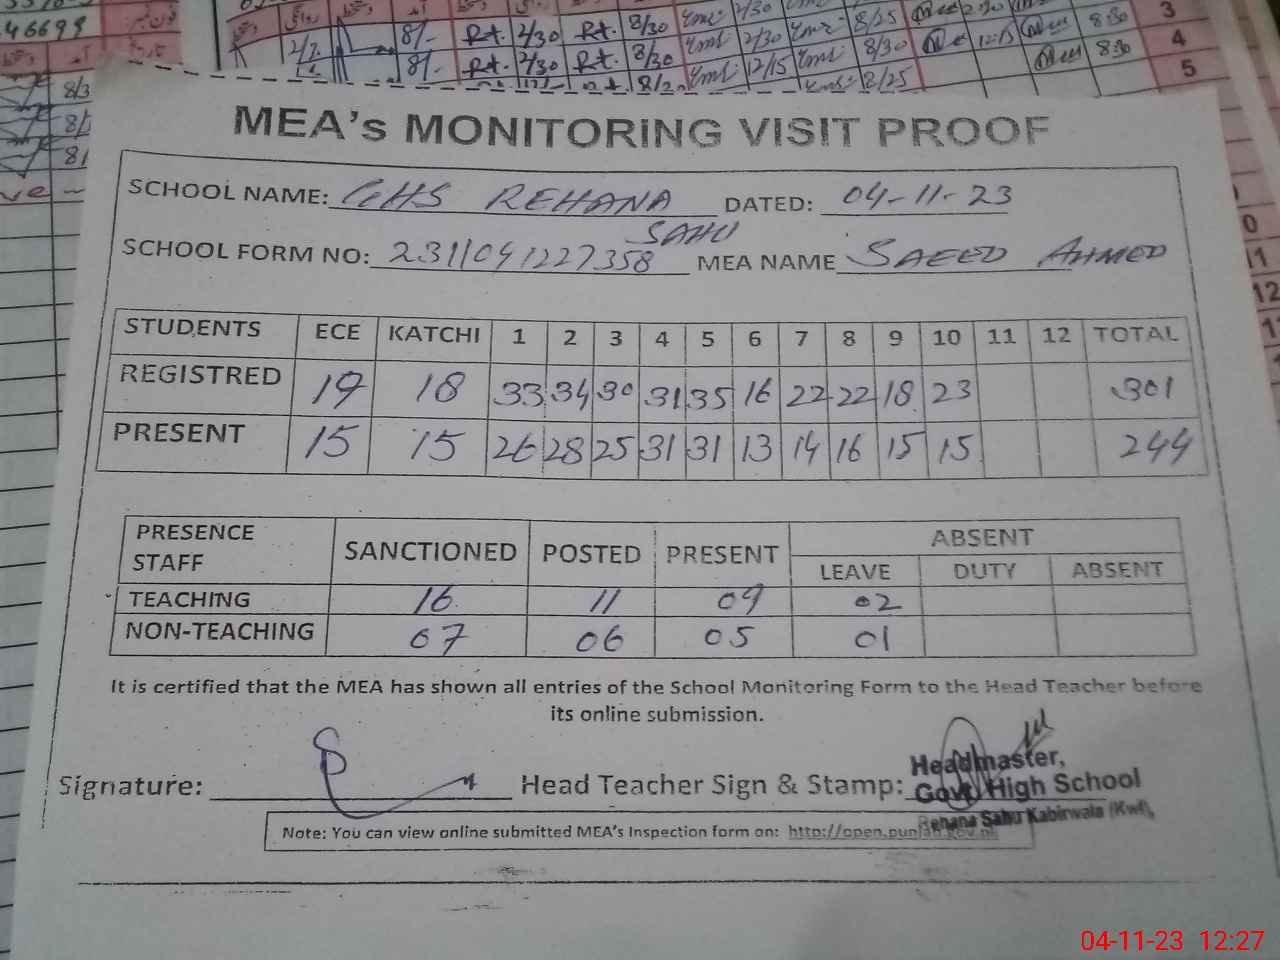 46699
8/- Rt. 2/30 Rt. 8/30 2/30 8/25
8/- Rt. 2/30 Rt. 8/30 2/30 8/30 12/15 8:30 3
12/15 8/25 8:30 4
5
MEA's MONITORING VISIT PROOF
SCHOOL NAME: GHS REHANA SAHU DATED: 04-11-23
SCHOOL FORM NO: 2311041227358 MEA NAME SAEED AHMED
STUDENTS ECE KATCHI 1 2 3 4 5 6 7 8 9 10 11 12 TOTAL
REGISTRED 19 18 33 34 30 31 35 16 22 22 18 23 301
PRESENT 15 15 26 28 25 31 31 13 14 16 15 15 244
PRESENCE STAFF SANCTIONED POSTED PRESENT ABSENT
LEAVE DUTY ABSENT
TEACHING 16 11 09 02
NON-TEACHING 07 06 05 01
It is certified that the MEA has shown all entries of the School Monitoring Form to the Head Teacher before
its online submission.
Signature: Head Teacher Sign & Stamp:
Headmaster,
Govt. High School
Rehana Sahu Kabirwala (Kwl),
Note: You can view online submitted MEA's Inspection form on: http://open.punjab.gov.pk
04-11-23 12:27